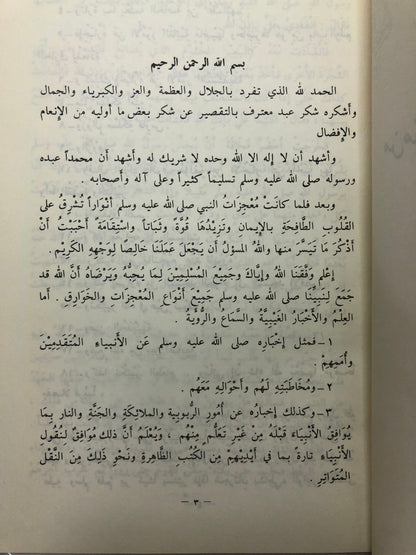 بسم الله الرحمن الرحيم
الحمد لله الذي تفرد بالجلال والعظمة والعز والكبرياء والجمال
وأشكره شكر عبد معترف بالتقصير عن شكر بعض ما أوليه من الإنعام
والإفضال
وأشهد أن لا إله إلا الله وحده لا شريك له وأشهد أن محمداً عبده
ورسوله صلى الله عليه وسلم تسليماً كثيراً وعلى آله وأصحابه .
وبعد فلما كانَتْ مُعجزاتُ النبي صلى الله عليه وسلم أنْوَاراً تُشْرِقُ على
القُلوبِ الطَّافِحَةِ بالإيمانِ وتَزِيدُهَا قُوَّةً وثَبَاتاً واسْتِقامَةً أحْبَبْتُ أنْ
أَذْكُرَ مَا تَيَسَّرَ منها واللهُ المسؤلُ أن يَجْعَلَ عَمَلَنَا خَالِصًا لِوَجْهِهِ الكَرِيْمِ .
إعْلم وَفَّقَنَا اللهُ وإيَّاكَ وجَمِيْعَ المُسْلِمِيْنَ لِمَا يُحِبُّهُ وَيَرْضَاهُ أنَّ الله قد
جَمَعَ لِنَبِيِّنَا صلى الله عليه وسلم جَمِيْعَ أَنْوَاعِ المُعْجِزَاتِ والخَوَارِقِ . أما
العِلْمُ والأخْبارُ الغَيْبِيَّةُ والسَّماعُ والرُّؤيَةُ
١ – فمثل إخْبَارِه صلى الله عليه وسلم عَنِ الأنبياءِ المُتَقَدِمِيْنَ
وأُمَمِهِمْ .
٢ – ومُخَاطَبَتِهِ لَهُم وأحْوَالِهِ مَعَهُم .
٣ – وكذلك إخبارُه عن أُمُورِ الرُّبوبِيةِ والملائِكَةِ والجَنَّةِ والنار بِمَا
يُوَافِقُ الأنْبِيَاءَ قَبْلَهُ مِنْ غَيْرِ تَعَلُّمٍ مِنْهُم ، ويُعْلَمُ أنَّ ذلك مُوَافِقٌ لِنُقُولِ
الأنْبياءِ تارةً بما في أيْدِيْهِمْ مِن الكُتُبِ الظَّاهِرةِ ونَحْوِ ذَلِكَ مِنَ النَّقْلِ
المُتَواتِرِ .
– ٣ –